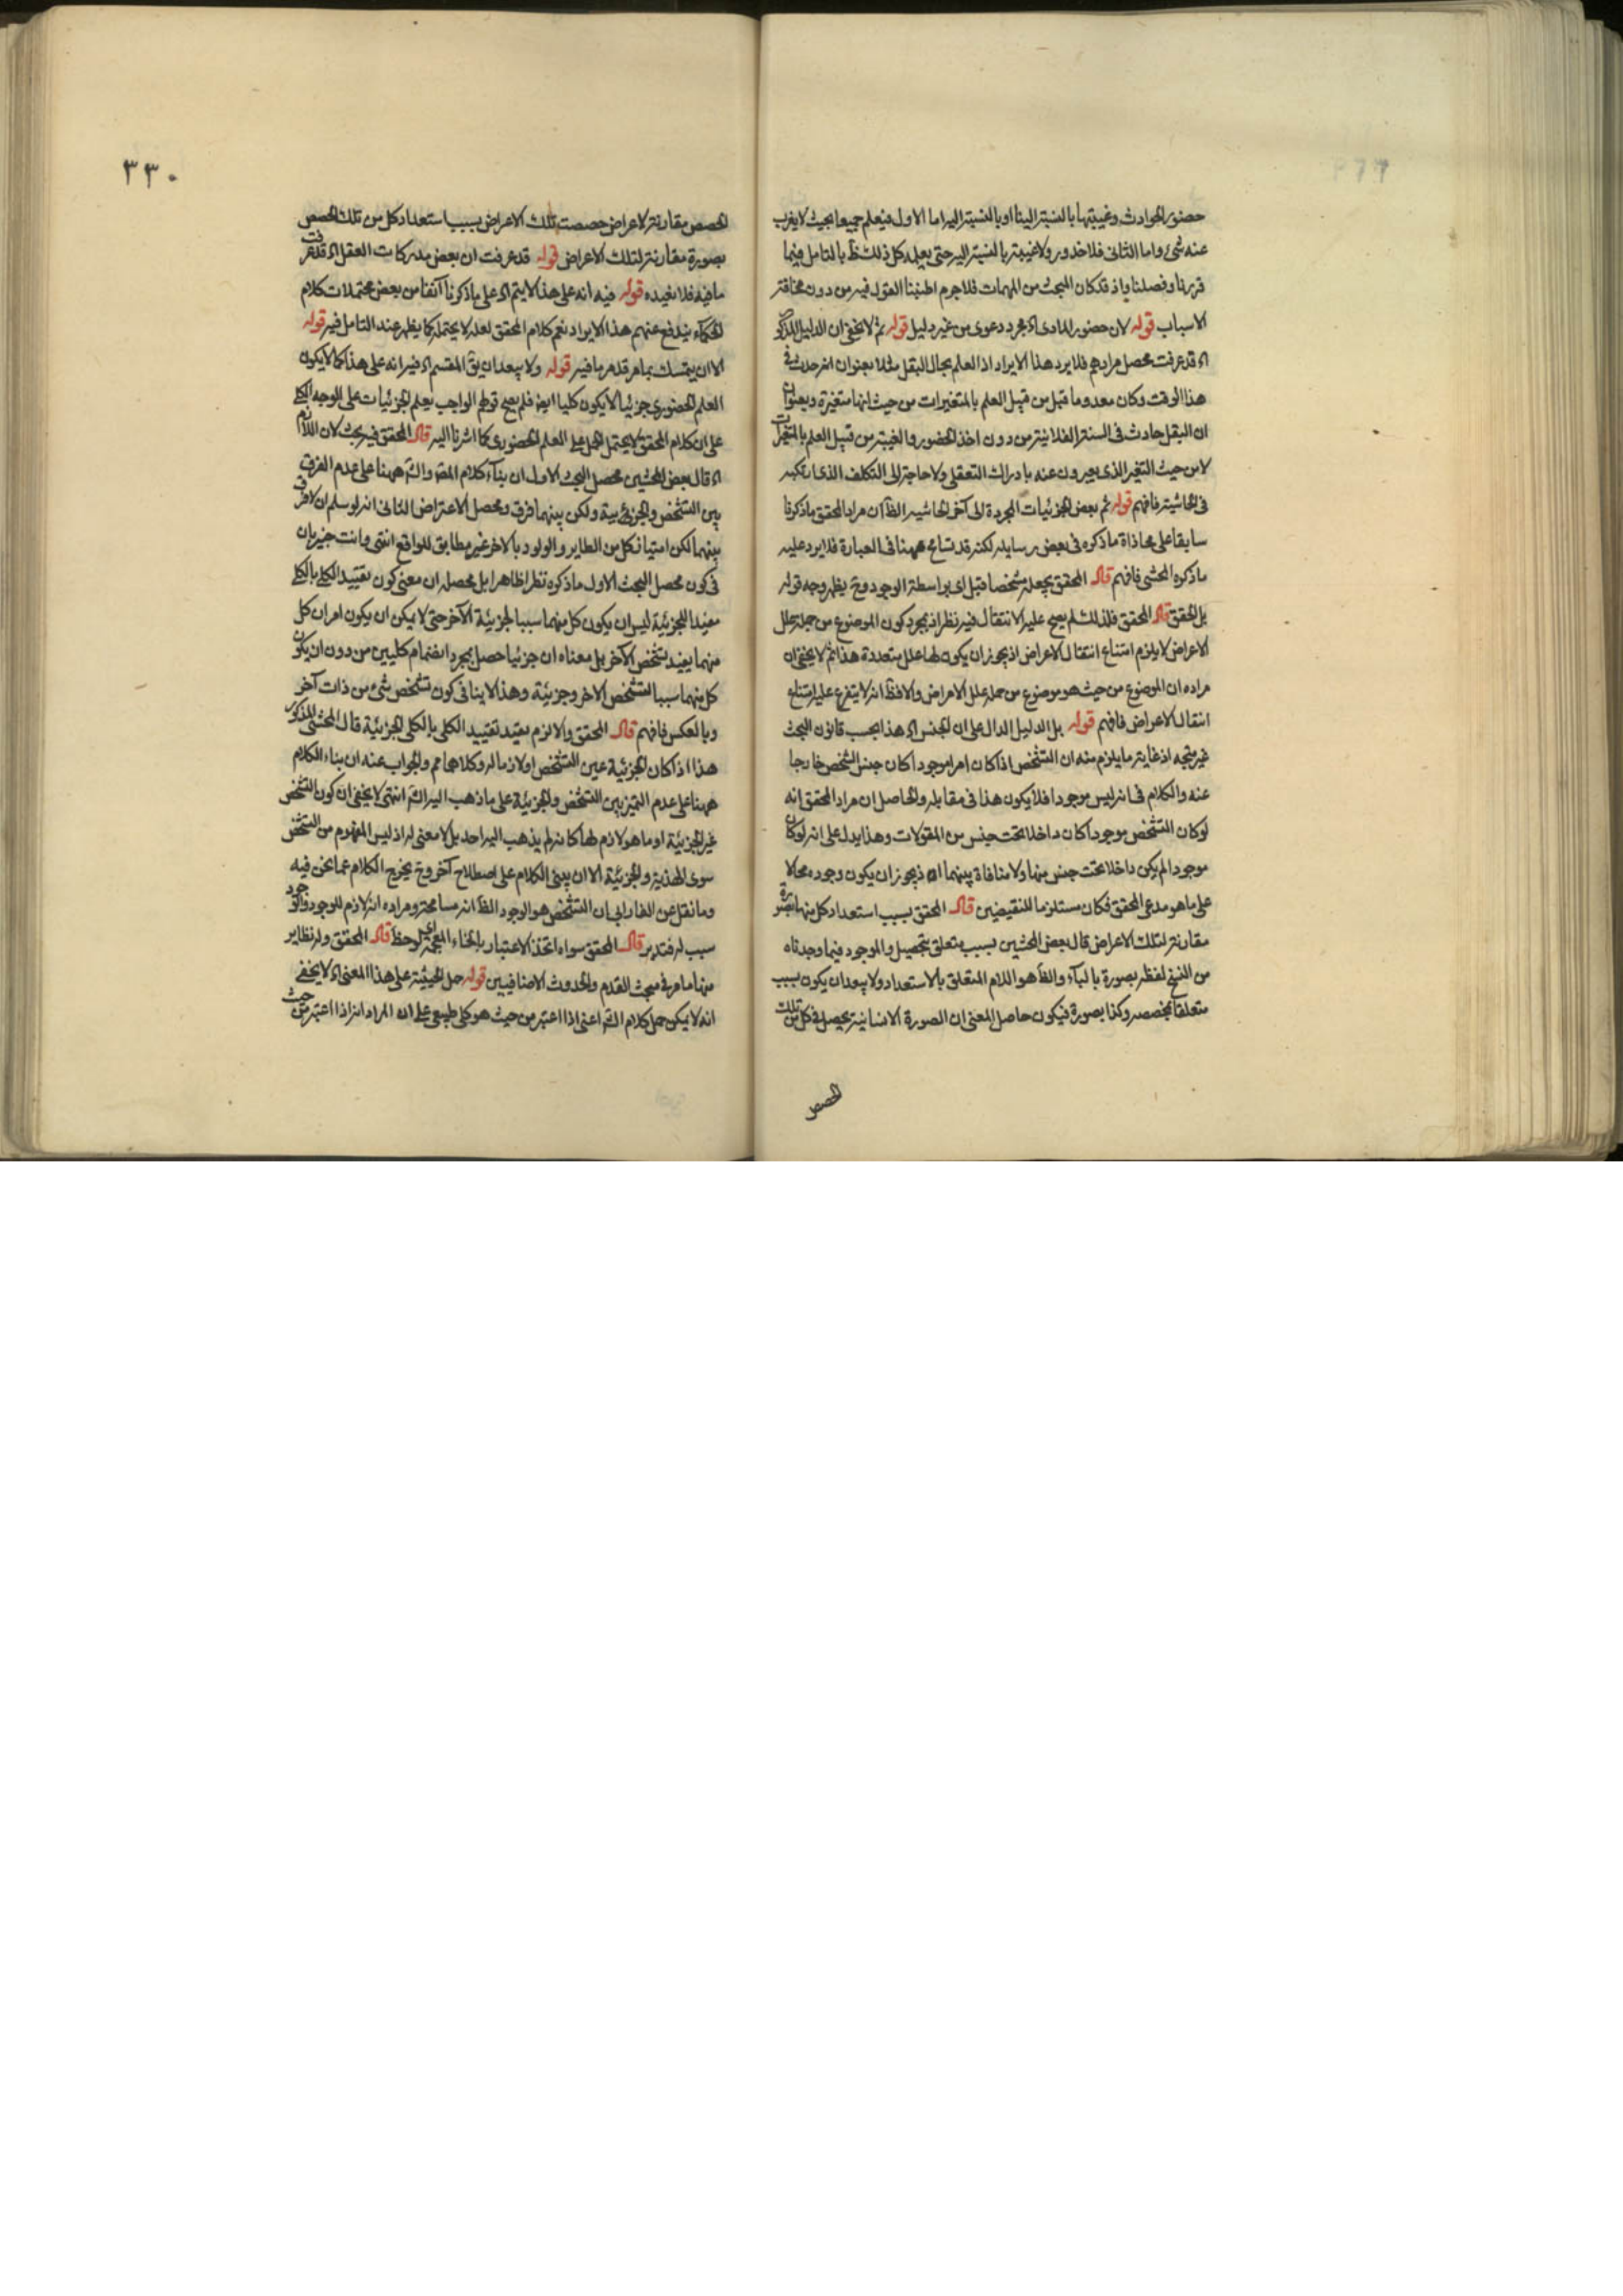 حضور الحوادث وغيبتها بالنسبة الينا او بالنسبة اليه اما الاول فيعلم جميعا بحيث لا يعزب
عنه شئ واما الثانى فلا حضور ولا غيبة بالنسبة اليه حتى يعلمه كل ذلك ظ بالتامل فيما
قررنا وفصلنا واذ قد كان المبحث من المهمات فلا جرم اطنبنا القول فيه من دون مخافة
الاسباب قوله لان حضور المادى اه مجرد دعوى من غير دليل قوله ثم لا يخفى ان الدليل المذكور
اه قد عرفت محصل مرادهم فلا يرد هذا الايراد اذ العلم بحال البقل مثلا بعنوان انه حدث فى
هذا الوقت وكان معدوما قبل من قبيل العلم بالمتغيرات من حيث انها متغيرة وبعنوان
ان البقل حادث فى السنة الفلانية من دون اخذ الحضور والغيبة من قبيل العلم بالمتغيرات
لا من حيث التغير الذى يعبرون عنه بادراك التعقلى ولا حاجة الى التكلف الذى ارتكبه
فى الحاشية فافهم قوله ثم بعض الجزئيات المجردة الى آخر الحاشيه الظ ان مراد المحقق ما ذكرنا
سابقا على محاذاة ما ذكره فى بعض رسايله لكنه قد تسامح ههنا فى العبارة فلا يرد عليه
ما ذكره المحشى فافهم قال المحقق يجعله مشخصا قبل اى بواسطة الوجود وح يظهر وجه قوله
بل المحقق قال المحقق فلذلك لم يصح عليه الانتقال فيه نظر اذ بمجرد كون الموضوع من جملة علل
الاعراض لا يلزم امتناع انتقال الاعراض اذ يجوز ان يكون لها علل متعددة هذا ثم لا يخفى ان
مراده ان الموضوع من حيث هو موضوع من جملة علل الاعراض والا فظ انه لا يتفرع عليه امتناع
انتقال الاعراض فافهم قوله بل الدليل الدال على ان الجنس اه هذا بحسب قانون البحث
غير متجه اذ غاية ما يلزم منه ان التشخص اذا كان امرا موجودا كان جنس الشخص خارجا
عنه والكلام فى انه ليس موجودا فلا يكون هذا فى مقابله والحاصل ان مراد المحقق انه
لو كان التشخص موجودا كان داخلا تحت جنس من المقولات وهذا يدل على انه لو كان
موجودا لم يكن داخلا تحت جنس منها ولا منافاة بينهما اذ يجوز ان يكون وجوده محالا
على ما هو مدعى المحقق فكان مستلزما للنقيضين قال المحقق بسبب استعداد كل منها لصورة
مقارنة لتلك الاعراض قال بعض المحشين بسبب متعلق بتحصيل والموجود فيما وجدناه
من النسخ لفظ بصورة بالباء والظ هو اللام المتعلق بالاستعداد ولا يبعد ان يكون بسبب
متعلقا بمخصصه وكذا بصورة فيكون حاصل المعنى ان الصورة الانسانية يحصل فى كل من تلك
الحصص
٣٣٠
الحصص مقارنة لاعراض خصصت تلك الاعراض بسبب استعداد كل من تلك الحصص
بصورة مقارنة لتلك الاعراض قوله قد عرفت ان بعض مدركات العقل اه قد عرفت
ما فيه فلا نعيده قوله فيه انه على هذا لا يتم اه على ما ذكرنا آنفا من بعض محتملات كلام
الحكماء يندفع عنهم هذا الايراد نعم كلام المحقق لعله لا يحتمله كما يظهر عند التامل فيه قوله
الا ان يتمسك بما مر قد مر ما فيه قوله ولا يبعد ان يق المقسم اه فيه انه على هذا كما لا يكون
العلم الحضورى جزئيا لا يكون كليا ايض فلم يصح قولهم الواجب يعلم الجزئيات على الوجه الكلى
على ان كلام المحقق لا يحتمل الحمل على العلم الحضورى كما اشرنا اليه قال المحقق فيه بحث لان اللازم
اه قال بعض المحشين محصل البحث الاول ان بناء كلام المصر والش ههنا على عدم الفرق
بين التشخص والجزئية ولكن بينهما فرق ومحصل الاعتراض الثانى انه لو سلم ان لا فرق
بينهما لكن امتياز كل من الطاير والولود بالآخر غير مطابق للواقع انتهى وانت خبير بان
فى كون محصل البحث الاول ما ذكره نظرا ظاهرا بل محصله ان معنى كون تقييد الكلى بالكلى
مفيدا للجزئية ليس ان يكون كل منهما سببا لجزئية الآخر حتى لا يمكن ان يكون امران كل
منهما يفيد تشخص الآخر بل معناه ان جزئيا حصل بمجرد انضمام كليين من دون ان يكون
كل منهما سببا لتشخص الآخر وجزئية وهذا لا ينافى كون تشخص شئ من ذات آخر
وبالعكس فافهم قال المحقق والا لزم تقييد الكلى بالكلى الجزئية قال المحشى المذكور
هذا اذا كان الجزئية عين التشخص او لازما له وكلاهما مم والجواب عنه ان بناء الكلام
ههنا على عدم التميز بين التشخص والجزئية على ما ذهب اليه الش انتهى لا يخفى ان كون التشخص
غير الجزئية او ما هو لازم لها كانه لم يذهب اليه احد بل لا معنى له اذ ليس المفهوم من التشخص
سوى الهذية والجزئية الا ان يبنى الكلام على اصطلاح آخر وح يخرج الكلام عما نحن فيه
وما نقل عن الفارابى ان التشخص هو الوجود الظ انه مسامحة ومراده انه لازم للوجود والوجود
سبب له فتدبر قال المحقق سواء اتخذ الاعتبار بانحاء لوحظ قال المحقق وله نظاير
منها ما مر فى مبحث القدم والحدوث الاضافيين قوله حمل الحيثية على هذا المعنى اه لا يخفى
انه لا يمكن حمل كلام الش اعنى اذا اعتبر من حيث هو كلى طبيعى على ان المراد انه اذا اعتبر من حيث